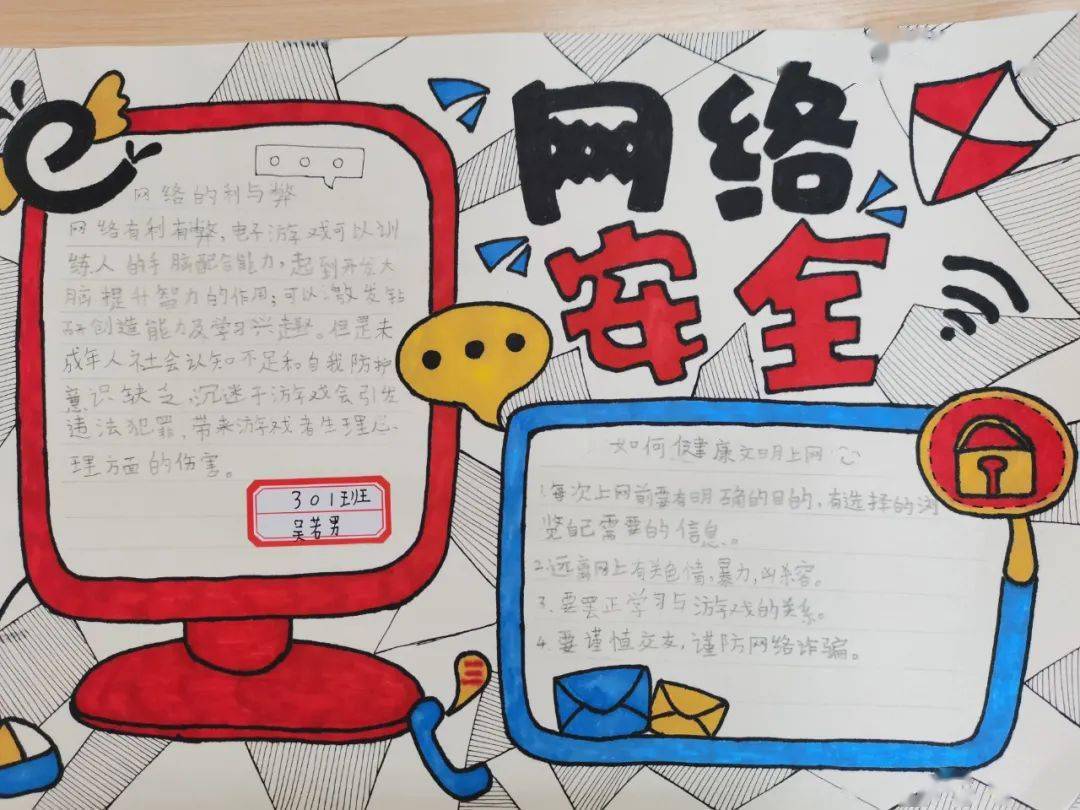 网络
安全
网络的利与弊
网络有利有弊,电子游戏可以训
练人的手脑配合能力,起到开发大
脑提升智力的作用;可以激发钻
研创造能力及学习兴趣。但是未
成年人社会认知不足和自我防护
意识缺乏,沉迷于游戏会引发
违法犯罪,带来游戏者生理心
理方面的伤害。
301班
吴若男
如何健康文明上网
1.每次上网前要有明确的目的,有选择的浏
览自己需要的信息。
2.远离网上有关色情,暴力,凶杀容。
3.要罢正学习与游戏的关系。
4.要谨慎交友,谨防网络诈骗。